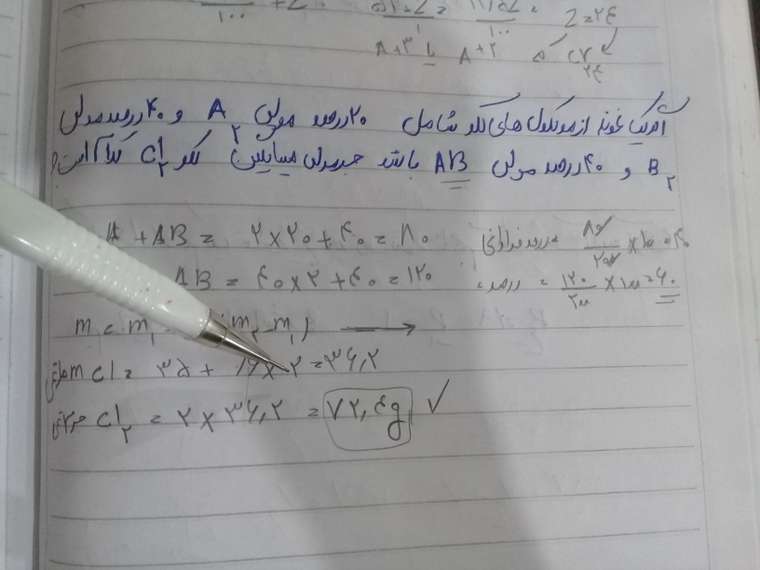 ۱۰۰
Z=۲۴
A+۳ یا A+۲
Cr
۲۴
اگر یک نمونه از مولکول های کلر شامل ۲۰ درصد مولی A۲ و ۴۰ درصد مولی
B۲ و ۴۰ درصد مولی AB باشد جرم مولی میانگین کلر Cl۲ کدام است؟
A + AB = ۲×۲۰+۴۰=۸۰ درصد فراوانی ۸۰/۲۰۰ ×۱۰۰=۴۰
AB = ۴۰×۲+۴۰=۱۲۰ درصد = ۱۲۰/۲۰۰ ×۱۰۰=۶۰
m = m₁ m₂-m₁
m Cl = ۳۵+ ×۲=۳۶,۲
Cl۲ = ۲×۳۶,۲ = ۷۲,۴g ✓